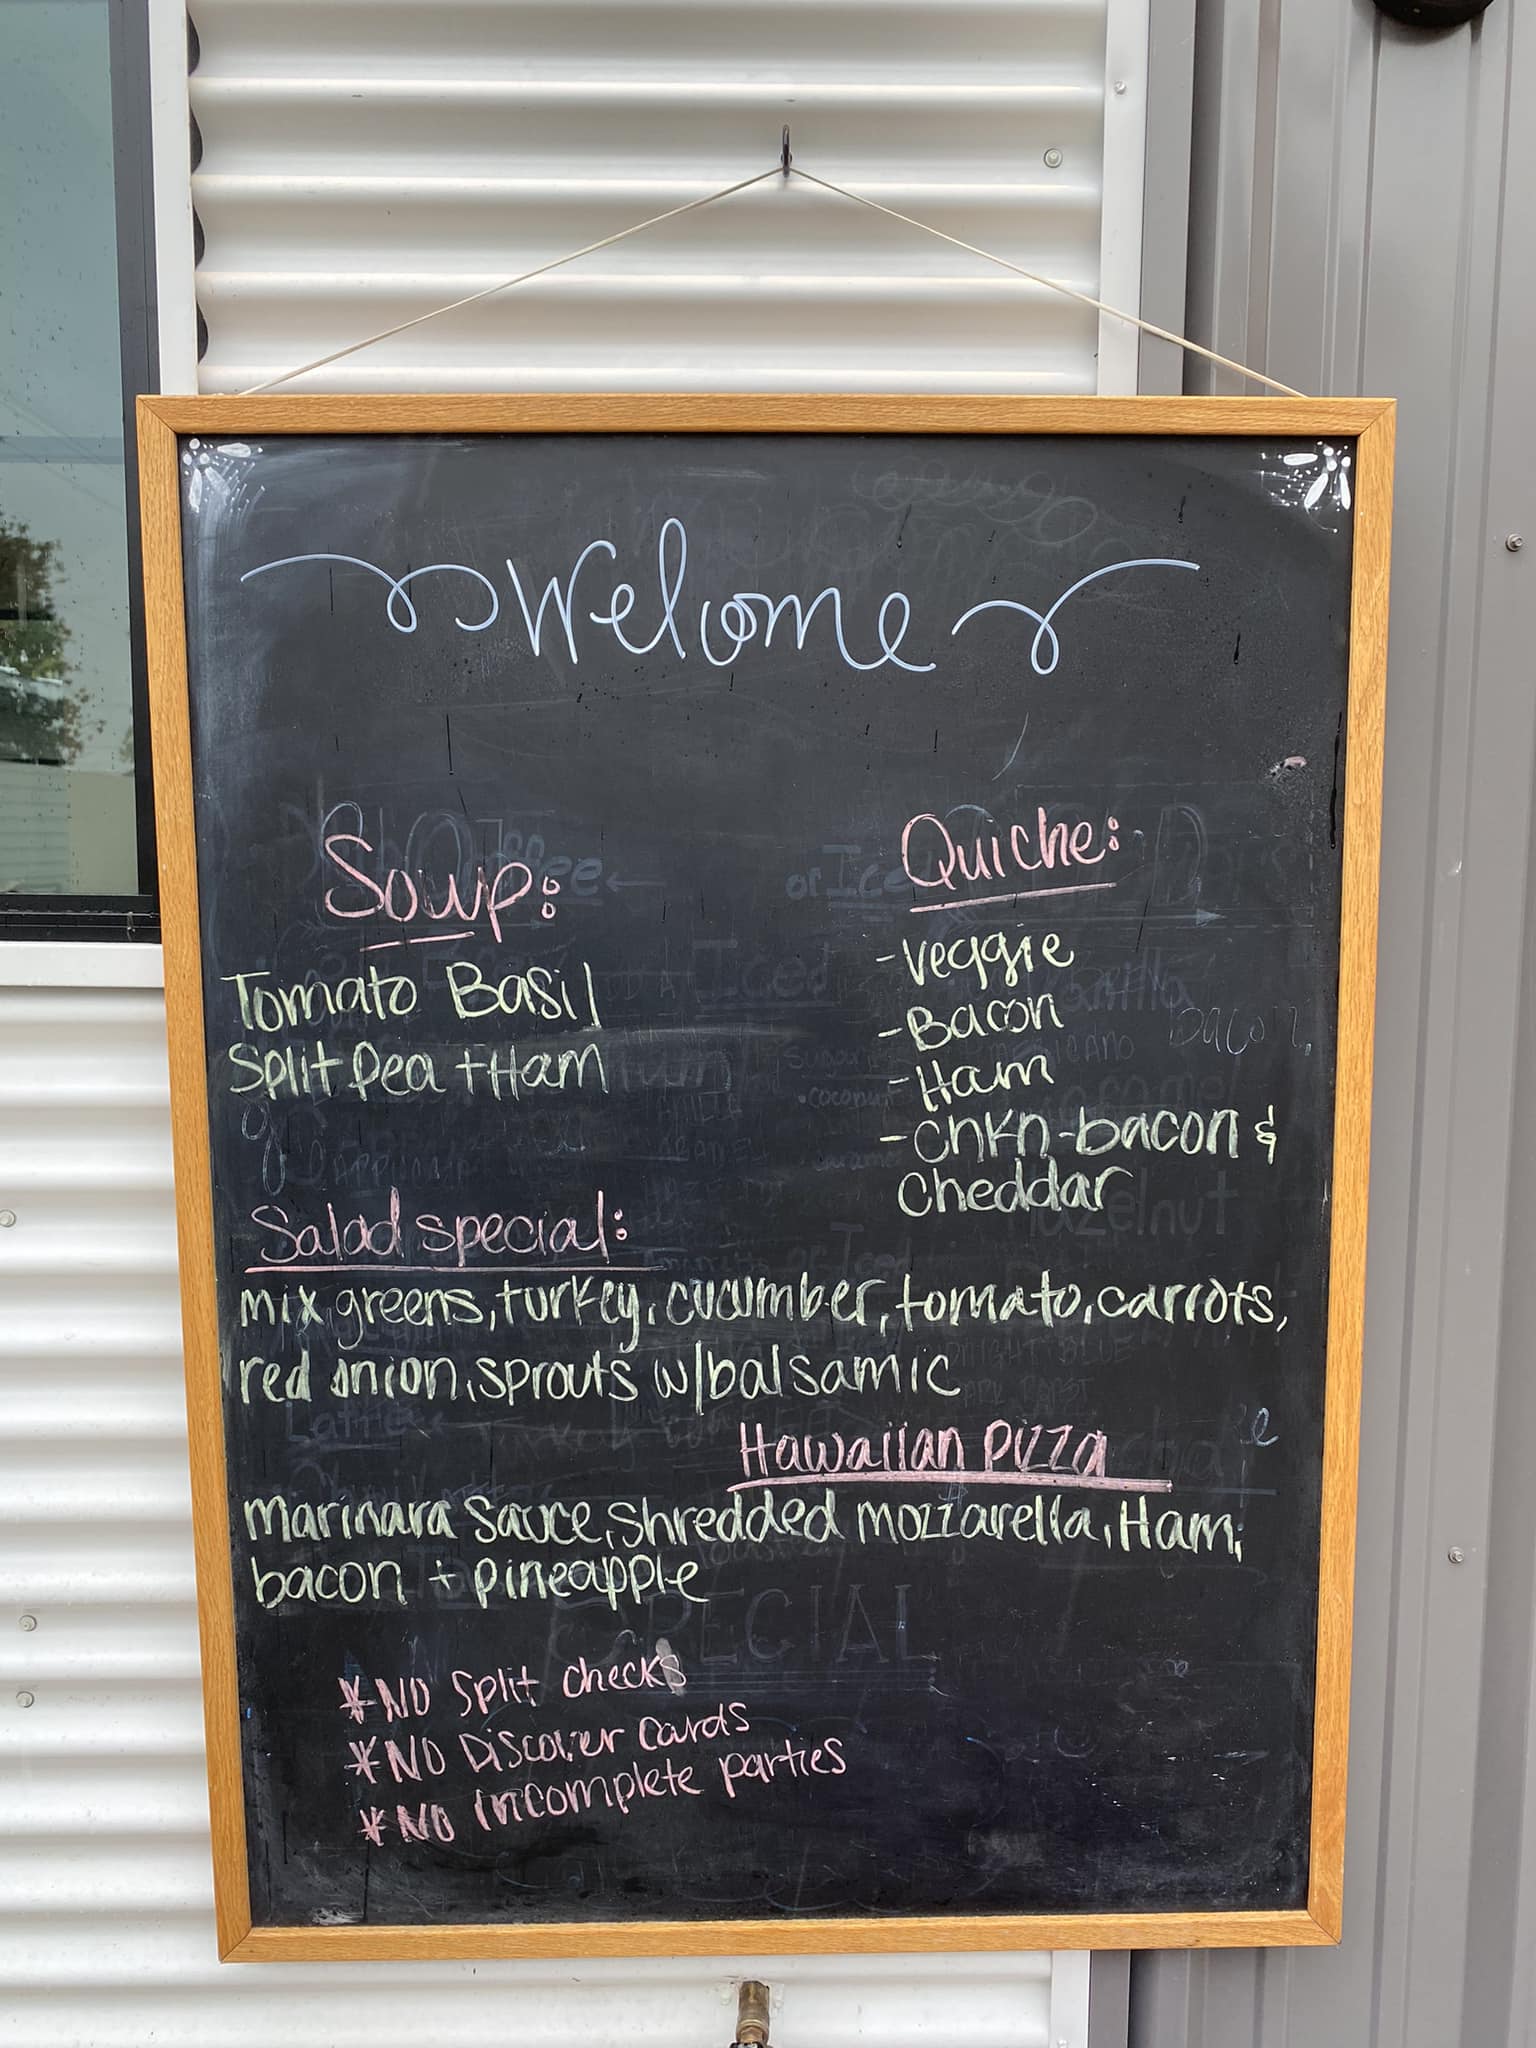 Welcome
Soup:
Tomato Basil
Split Pea + Ham
Quiche:
- Veggie
- Bacon
- Ham
- Chkn-bacon &
Cheddar
Salad special:
mix greens, turkey, cucumber, tomato, carrots,
red onion, sprouts w/balsamic
Hawaiian Pizza
Marinara Sauce, Shredded mozzarella, Ham,
bacon + pineapple
SPECIAL
*NO Split checks
*NO Discover cards
*NO incomplete parties